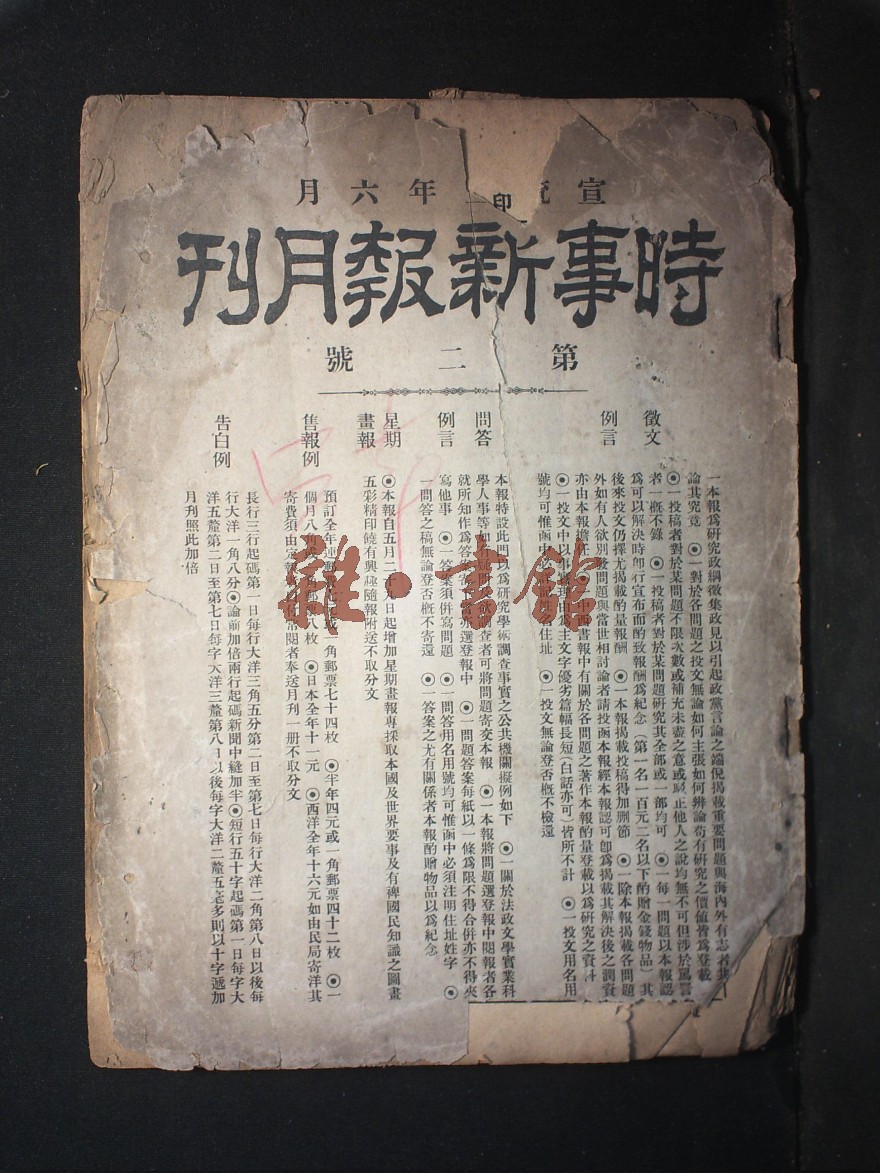 宣統 年六月
印
時事新報月刊
第二號
徵文
例言
一本報爲研究政綱徵集政見以引起政黨言論之端倪揭載重要問題與海內外有志者共
論其究竟 ◉一對於各問題之投文無論如何主張如何辨論苟有研究之價値皆爲登載
◉一投稿者對於某問題不限次數或補充未盡之意或 正他人之說均無不可但涉於罵詈
者一概不錄 ◉一投稿者對於某問題研究其全部或一部均可 ◉一每一問題以本報認
爲可以解決時卽行宣布而酌致報酬爲紀念（第一名一百元二名以下酌贈金錢物品）其
後來投文仍擇尤揭載酌量報酬 ◉一本報揭載投稿得加刪節 ◉一除本報揭載各問題
外如有人欲別發問題與當世相討論者請投函本報經本報認可卽爲揭載其解決後之潤資
亦由本報擔任 中西書報中有關於各問題之著作本報酌量登載以爲研究之資料
◉一投文中以事 理由爲主文字優劣篇幅長短（白話亦可）皆所不計 ◉一投文用名用
號均可惟函中必 姓 住址 ◉一投文無論登否概不檢還
問答
例言
本報特設此門以爲研究學術調查事實之公共機關擬例如下 ◉一關於法政文學實業科
學人事等如有疑問及欲調查者可將問題寄交本報 ◉一本報將問題選登報中閱報者各
就所知作爲答 寄 亦選登報中 ◉一問題答案每紙以一條爲限不得合併亦不得夾
寫他事 ◉一答案須併寫問題 ◉一問答用名用號均可惟函中必須注明住址姓字 ◉
一問答之稿無論登否概不寄還 ◉一答案之尤有關係者本報酌贈物品以爲紀念
星期
畫報
◉本報自五月二十 日起增加星期畫報專採取本國及世界要事及有裨國民知識之圖畫
五彩精印饒有興趣隨報附送不取分文
售報例
預訂全年連郵費 或一角郵票七十四枚 ◉半年四元或一角郵票四十二枚 ◉一
個月八角或一角郵票八枚 ◉日本全年十一元 ◉西洋全年十六元如由民局寄洋其
寄費須由定報 付常閱者奉送月刊一册不取分文
告白例
長行三行起碼第一日每行大洋三角五分第二日至第七日每行大洋二角第八日以後每
行大洋一角八分◉論前加倍兩行起碼新聞中縫加半◉短行五十字起碼第一日每字大
洋五釐第二日至第七日每字大洋三釐第八日以後每字大洋二釐五毫多則以十字遞加
月刊照此加倍
雜·書館